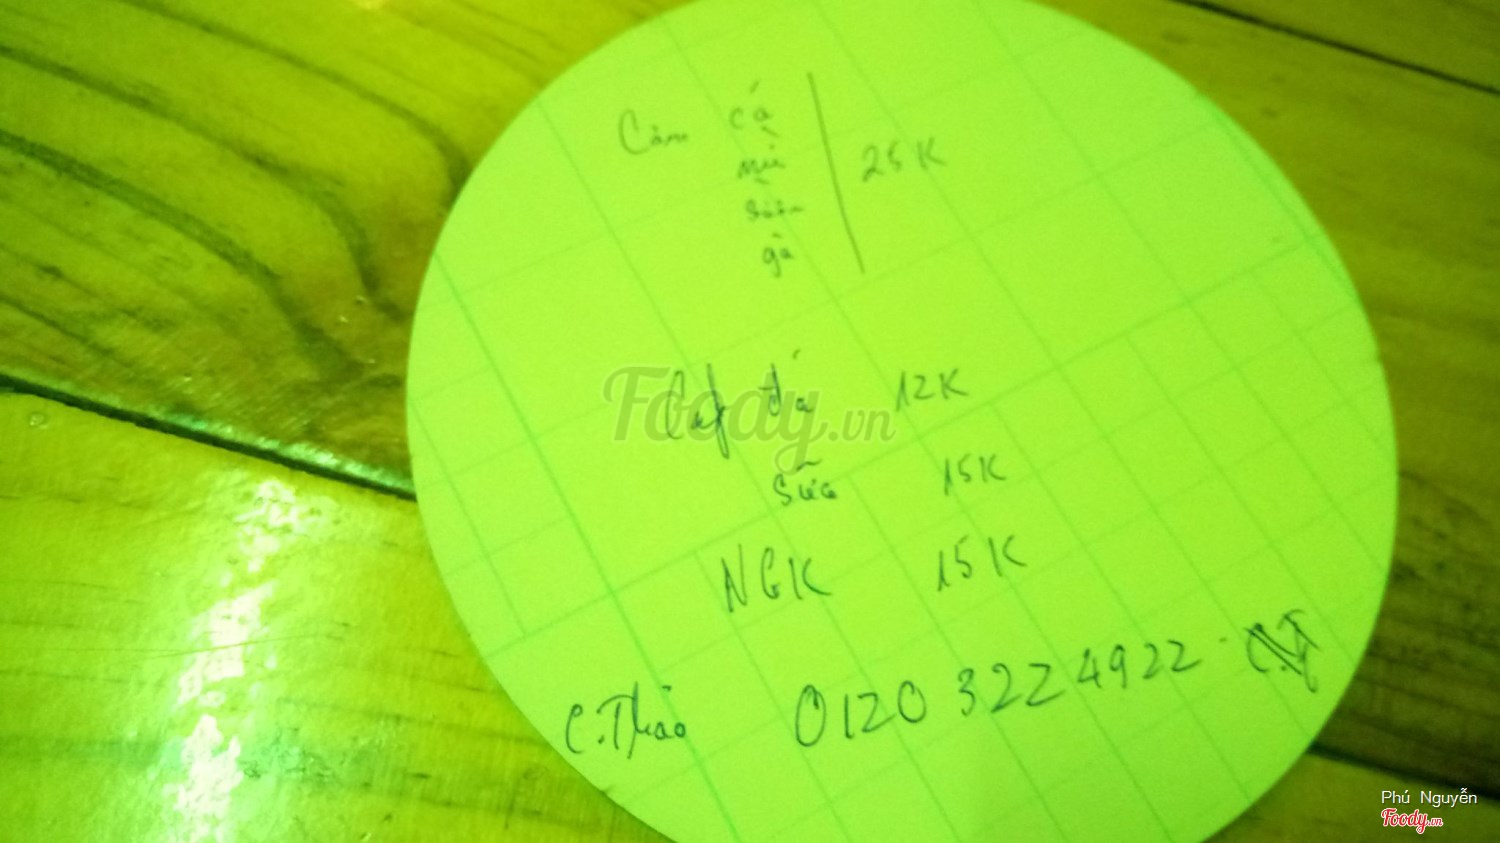 Cơm cá
mì
sườn
gà
25K
Caf đá 12K
sữa 15K
NGK 15K
C.Thảo 0120 322 4922
Foody.vn
Phú Nguyễn
Foody.vn